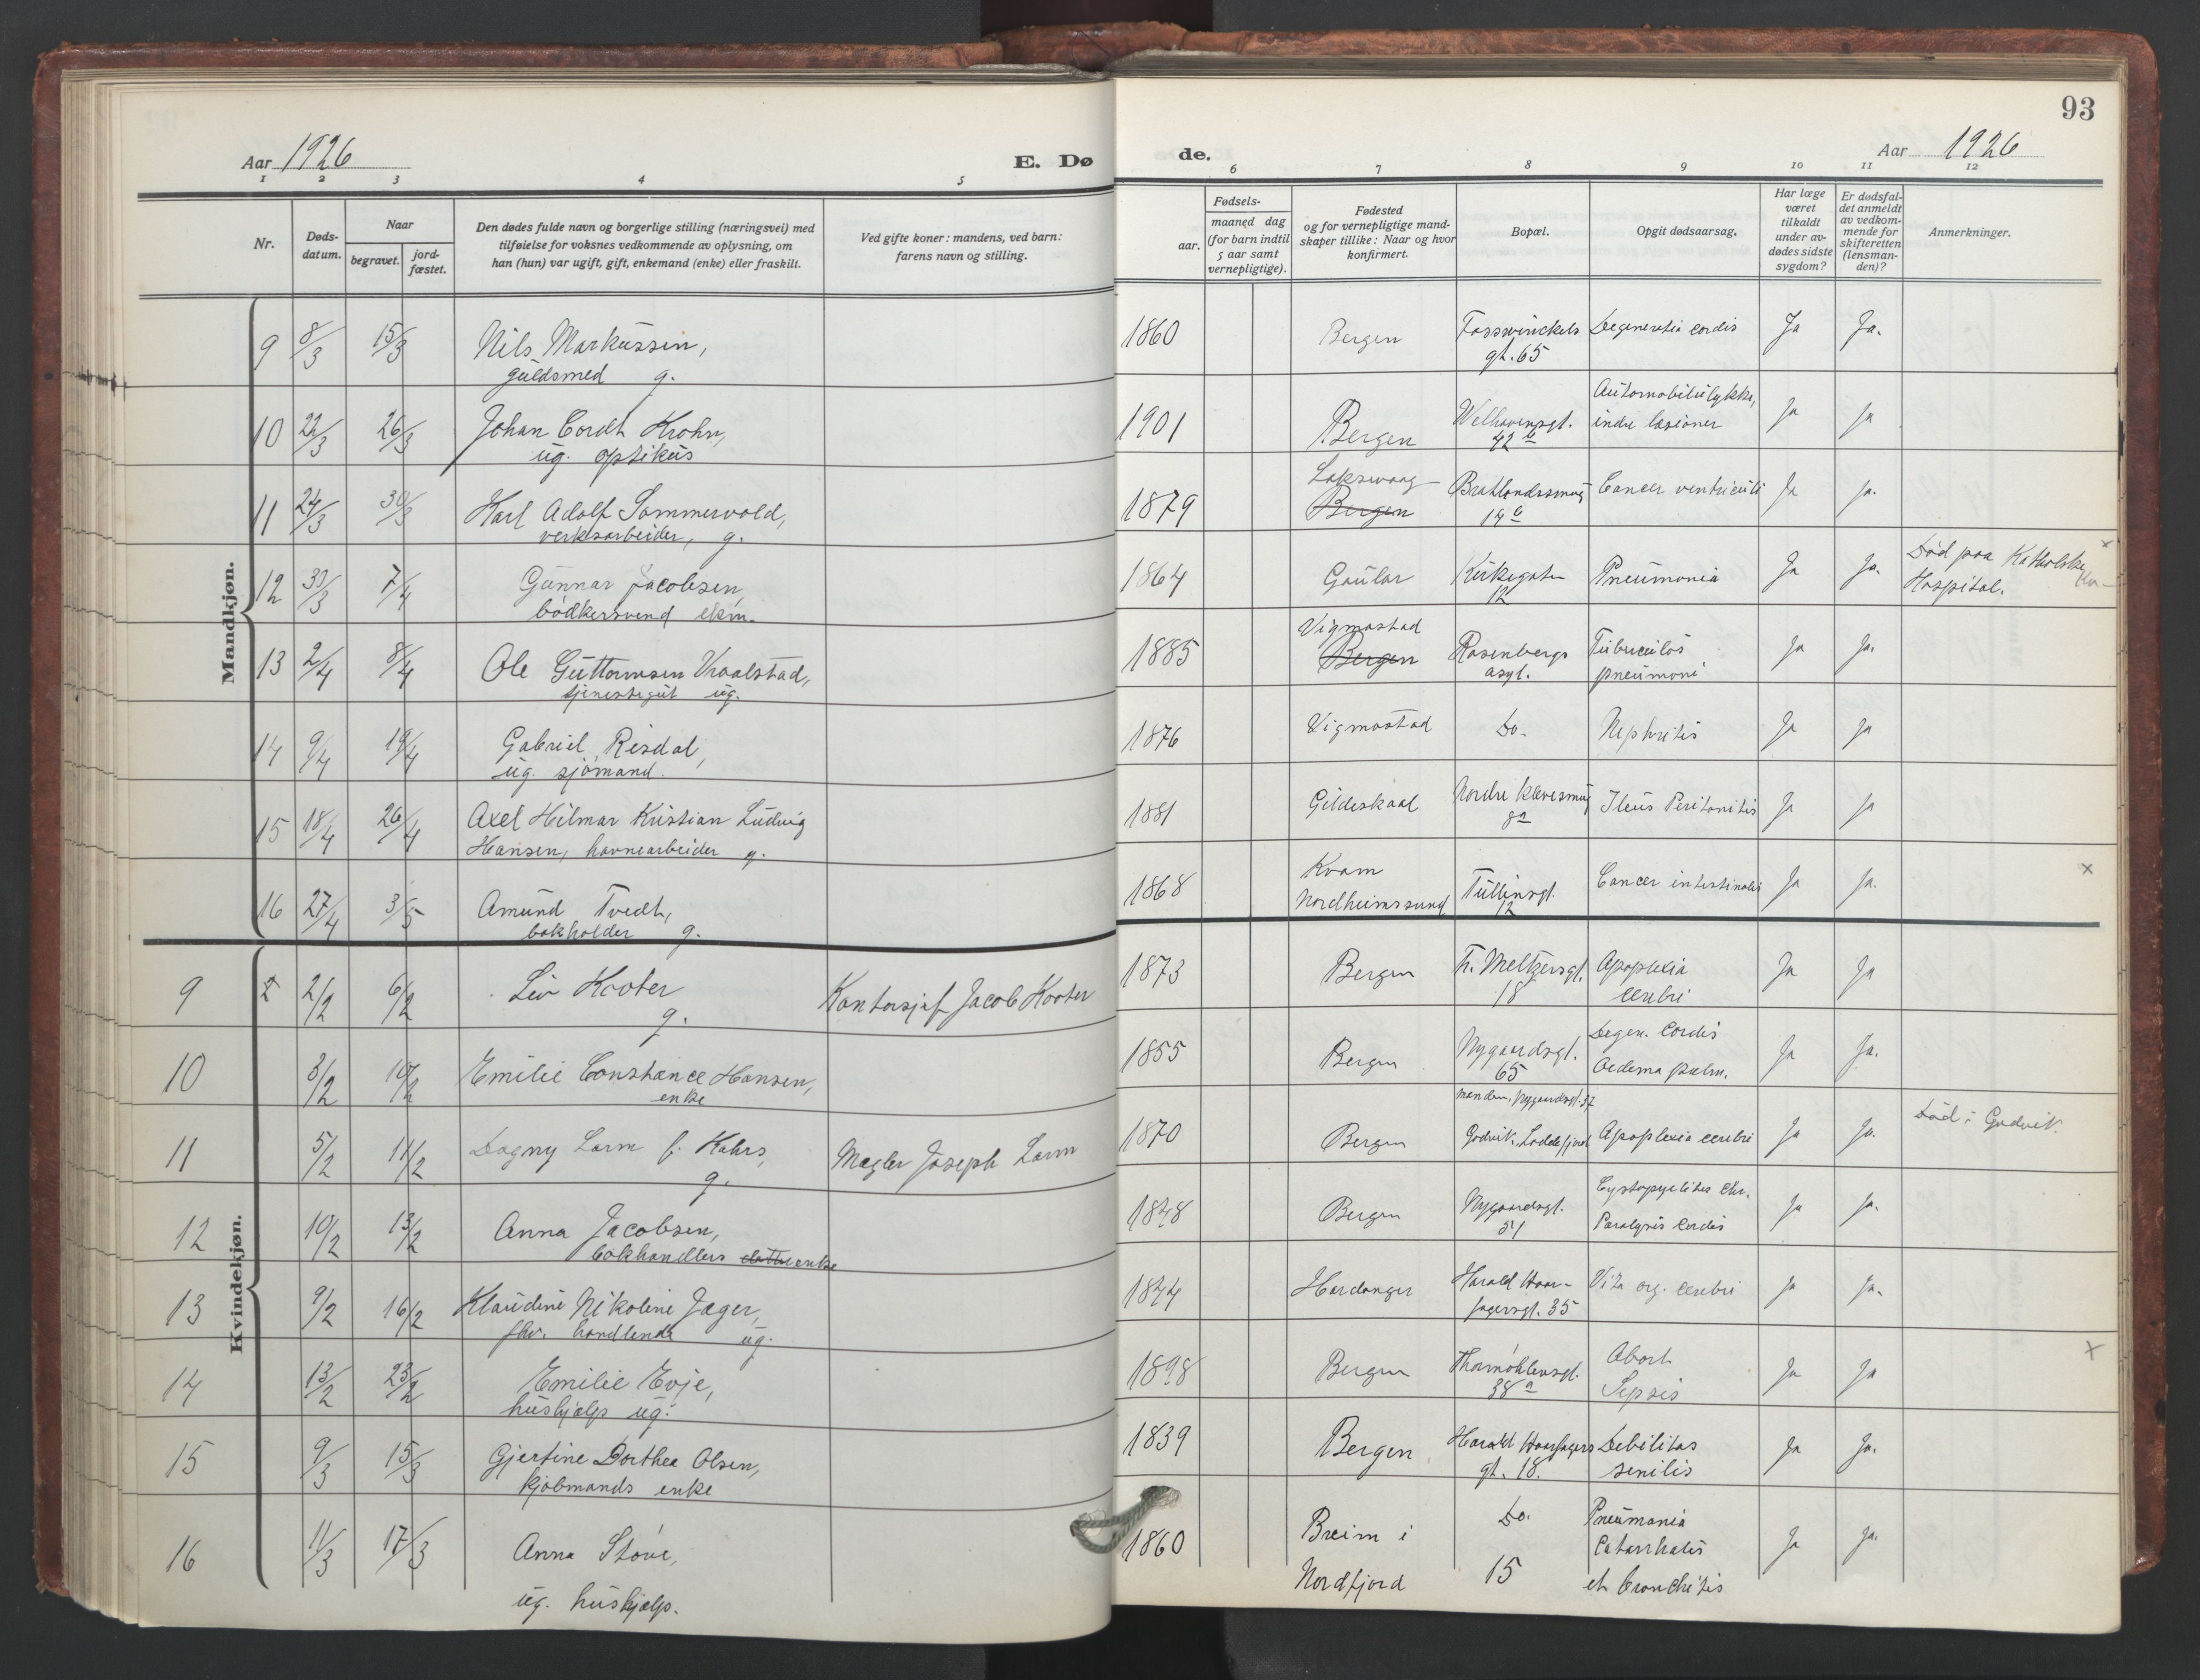 93
Aar 1926
E. Dø
de.
Aar 1926
1 2 3 4 5
6 7 8 9 10 11 12
Nr.
Døds-
datum.
Naar
begravet.
jord-
fæstet.
Den dødes fulde navn og borgerlige stilling (næringsvei) med
tilføielse for voksnes vedkommende av oplysning, om
han (hun) var ugift, gift, enkemand (enke) eller fraskilt.
Ved gifte koner: mandens, ved barn:
farens navn og stilling.
Fødsels-
aar.
maaned dag
(for barn indtil
5 aar samt
vernepligtige).
Fødested
og for vernepligtige mand-
skaper tillike: Naar og hvor
konfirmert.
Bopæl.
Opgit dødsaarsag.
Har læge
været
tilkaldt
under av-
dødes sidste
sygdom?
Er dødsfal-
det anmeldt
av vedkom-
mende for
skifteretten
(lensman-
den)?
Anmerkninger.
Mandkjøn.
9 8/3 15/3 Nils Markussen, 1860 Bergen Fosswinckels Degeneratio cordis Ja Ja.
guldsmed g. gt. 65
10 22/3 26/3 Johan Cordt Krohn, 1901 Bergen Welhavensgt. Automobilulykke, Ja ja
ug. optikus 42 b indre læsioner
11 24/3 30/3 Karl Adolf Sommervold, 1879 Laksevaag Bratlandssmug Cancer ventriculi Ja ja.
verksarbeider, g. Bergen
12 30/3 7/4 Gunnar Jacobsen, 1864 Gaular Kirkegaten Pneumonia Ja Ja. Død paa Katholske
bødkersvend ekm. 12 Hospital.
13 2/4 8/4 Ole Guttormsen Vraalstad, 1885 Vigmostad Rosenbergs Tuberculøs Ja Ja.
tjenestegut ug. Bergen asyl. pneumoni
14 9/4 19/4 Gabriel Risdal, 1876 Vigmostad Do. Nephritis Ja ja
ug. sjømand.
15 18/4 26/4 Axel Hilmar Kristian Ludvig 1881 Gildeskaal Nordre Klevesmug Ileus Peritonitis Ja ja
Hansen, havnearbeider g. 8a
16 27/4 3/5 Amund Tvedt, 1868 Kvam Tullinsgt. Cancer intestinalis Ja ja. x
bokholder g. Nordheimssund 12
Kvindekjøn.
9 2/2 6/2 Liv Kooter 1873 Bergen Fr. Meltzersgt. Apoplexia Ja Ja
g. Kontorsjef Jacob Kooter 18 cerebri
10 3/2 10/2 Emilie Constance Hansen, 1855 Bergen Nygaardsgt. Degen. Cordis Ja Ja.
enke 65 Oedema pulm.
11 5/2 11/2 Dagny Larm f. Kahrs, Mægler Joseph Larm 1870 Bergen Nygaardsgt. 37 Apoplexia cerebri Ja Ja. Død i Godvik.
g. Godvik, Loddefjord
12 10/2 13/2 Anna Jacobsen, 1848 Bergen Nygaardsgt. Cystopyelitis chr. Ja Ja.
bokhandlers enke 51 Paralysis cordis
13 9/2 16/2 Klaudine Nikoline Jæger, 1844 Hardanger Harald Haar- Vit. org. cerebri Ja Ja.
fhv. handlende ug. fagersgt. 35
14 13/2 23/2 Emilie Evje, 1898 Bergen Thormøhlensgt. Abort Ja Ja x
hushjælp ug. 38 a Sepsis
15 9/3 15/3 Gjertine Dorthea Olsen, 1839 Bergen Harald Haarfagers Debilitas Ja Ja.
kjøbmands enke gt. 18. senilis
16 11/3 17/3 Anna Støve, 1860 Breim i Do. Pneumonia Ja Ja.
ug. hushjælp. Nordfjord 15 Catarrhalis
et bronchitis